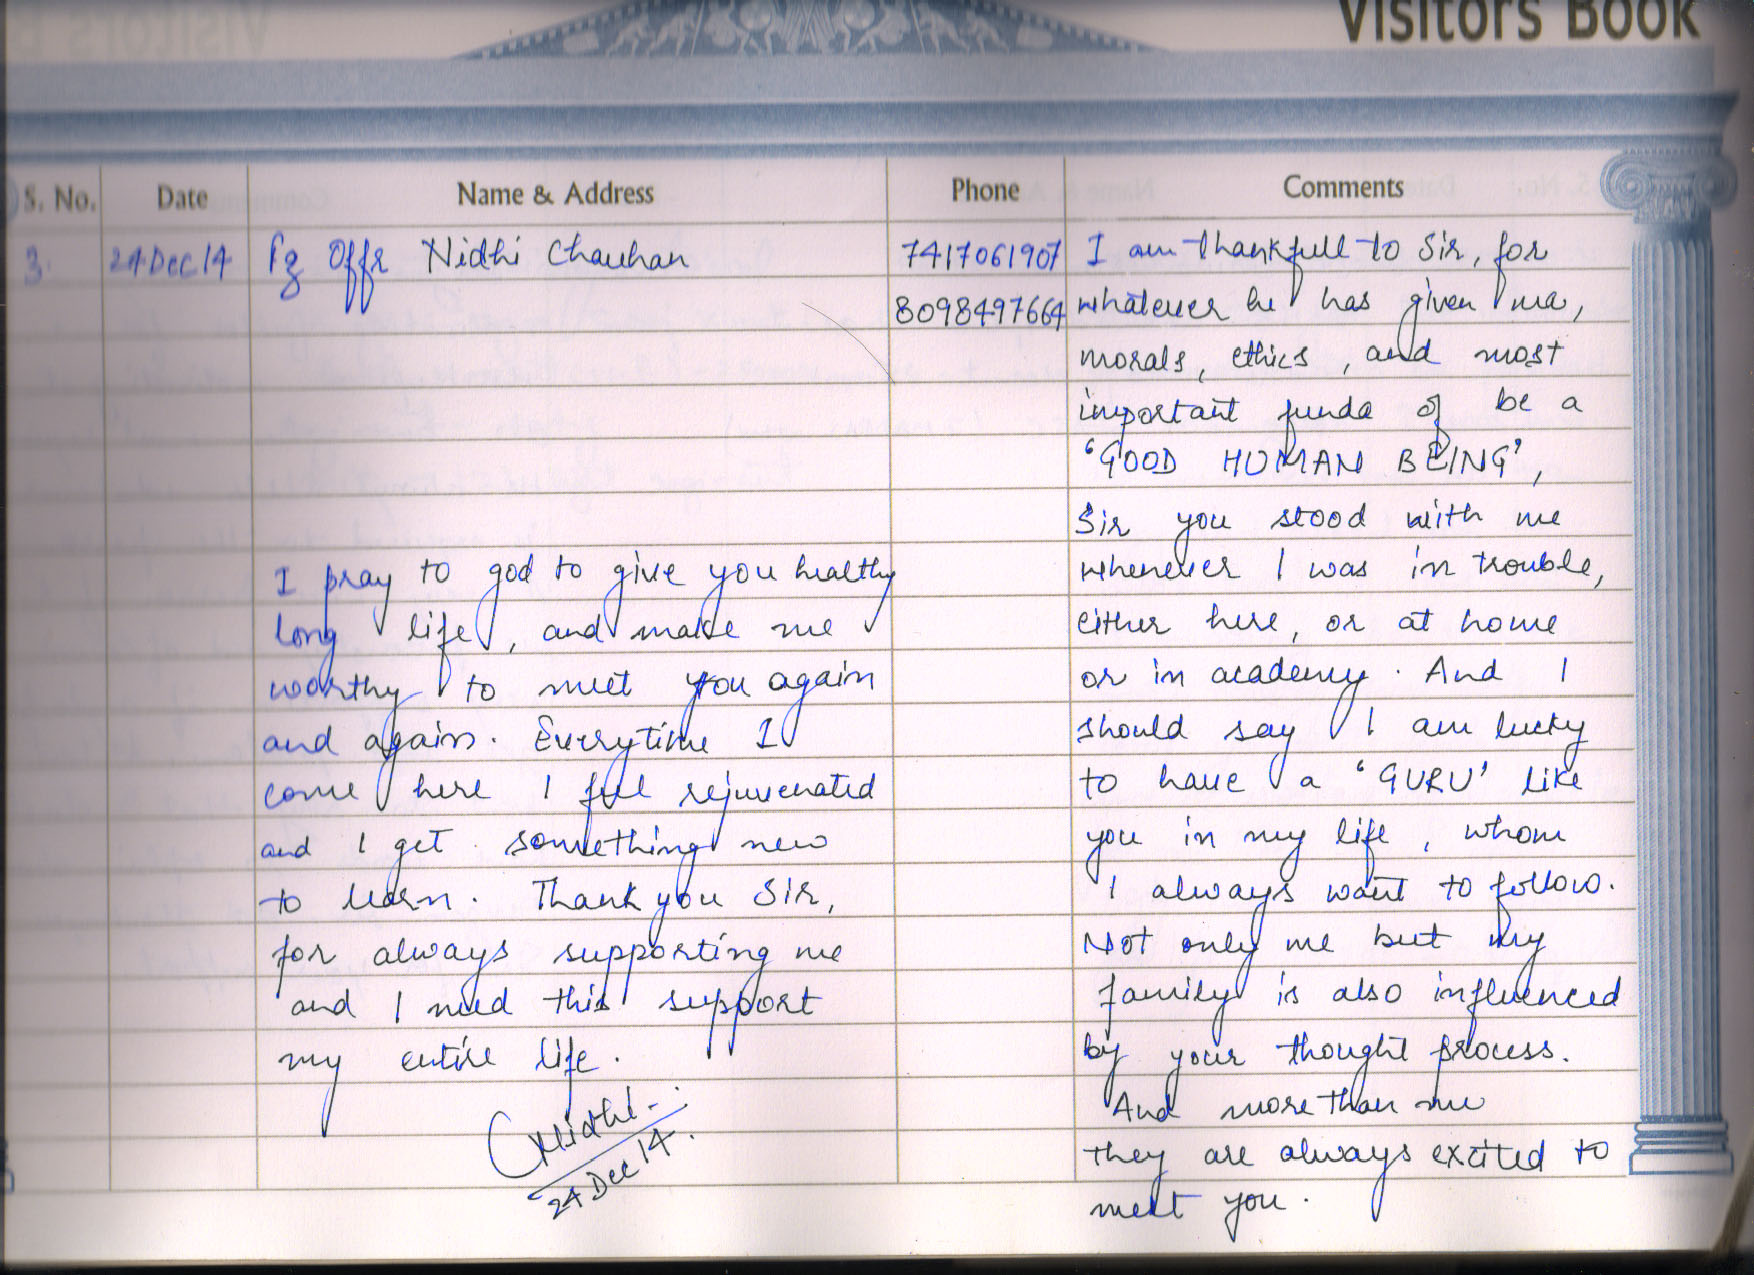 VISITORS BOOK
S. No. Date Name & Address Phone Comments
3. 24 Dec 14 Fg Offr Nidhi Chauhan 7417061907
8098497664
I am thankfull to Sir, for
whatever he has given me,
morals, ethics, and most
important funda of be a
'GOOD HUMAN BEING',
Sir you stood with me
whenever I was in trouble,
either here, or at home
or in academy. And I
should say I am lucky
to have a 'GURU' like
you in my life, whom
I always want to follow.
Not only me but my
family is also influenced
by your thought process.
And more than me
they are always excited to
meet you.
I pray to god to give you healthy
long life, and make me
worthy to meet you again
and again. Everytime I
come here I feel rejuvenated
and I get something new
to learn. Thank you Sir,
for always supporting me
and I need this support
my entire life.
Nidhi
24 Dec 14.